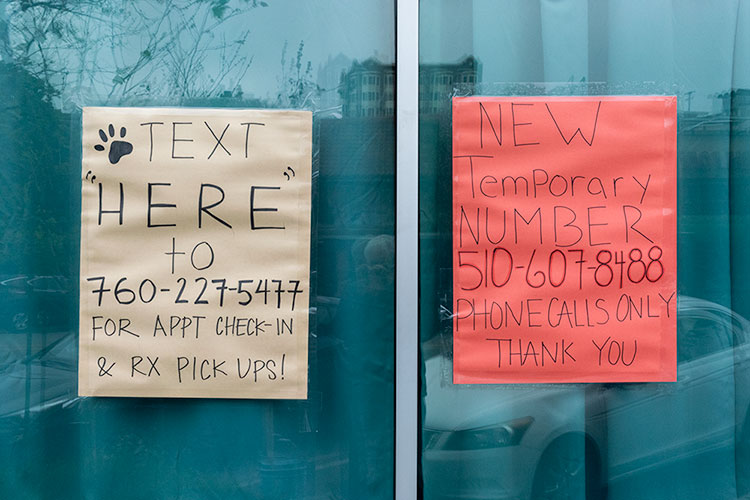 TEXT
"HERE"
to
760-227-5477
FOR APPT CHECK-IN
& RX PICK UPS!
NEW
TemPorary
NUMBER
510-607-8488
PHONE CALLS ONLY
THANK YOU